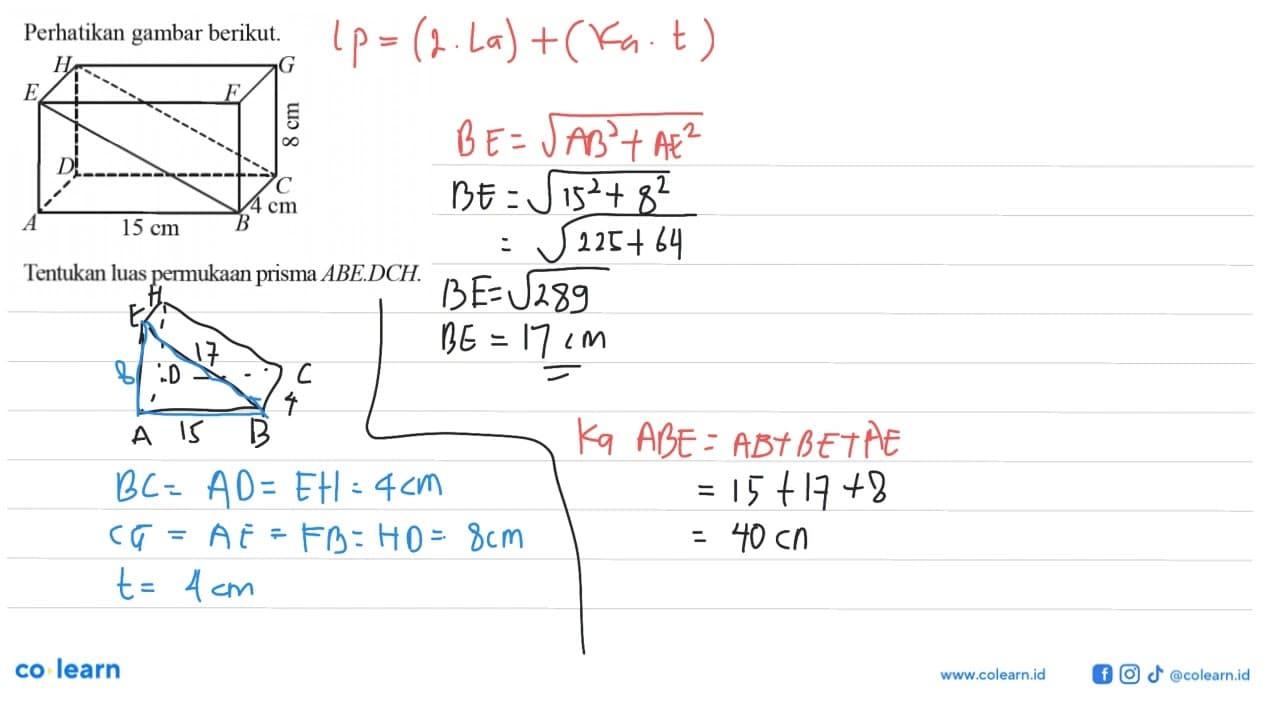 Perhatikan gambar berikut.
H
G
E
F
8 cm
D
C
4 cm
A
B
15 cm
Tentukan luas permukaan prisma ABE.DCH.
Lp = (2. La) + (Ka. t)
BE = √AB² + AE²
BE = √15² + 8²
= √225 + 64
BE = √289
BE = 17 cm
H
E
17
8
D
C
4
A 15 B
BC = AD = EH = 4 cm
CG = AE = FB = HD = 8 cm
t = 4 cm
Ka ABE = AB + BE + AE
= 15 + 17 + 8
= 40 cm
co learn
www.colearn.id
@colearn.id